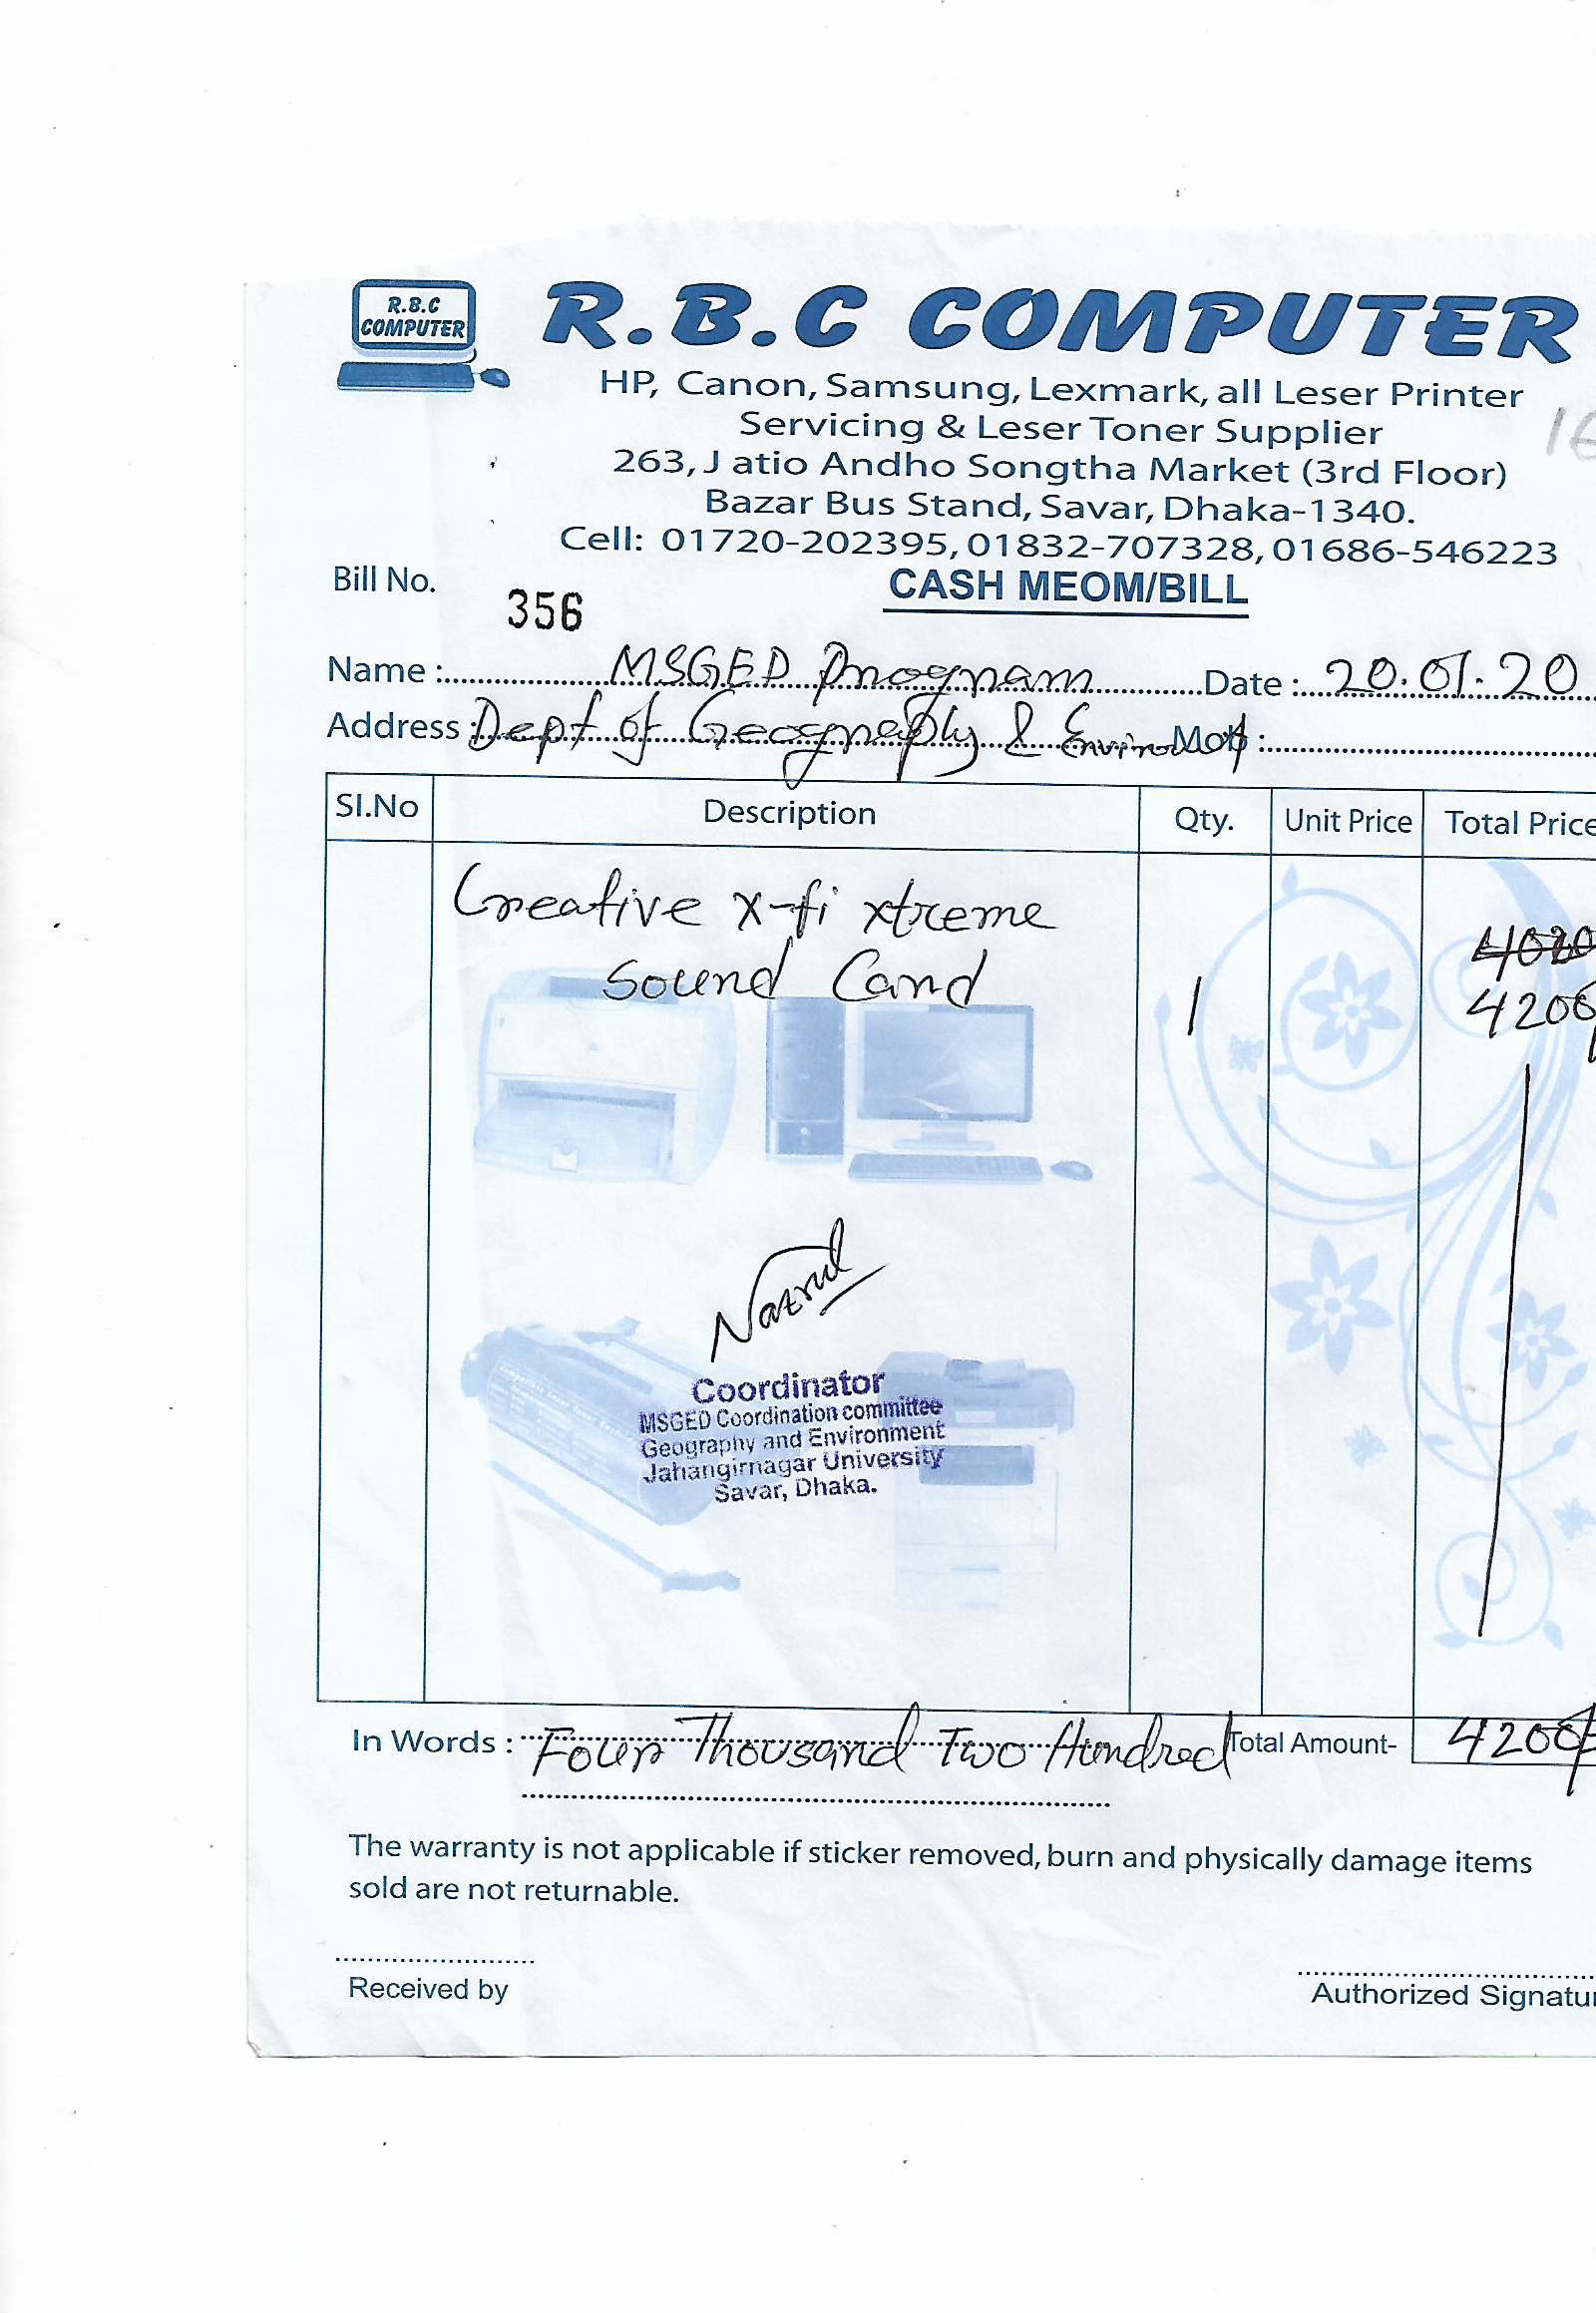 R.B.C
COMPUTER
R.B.C COMPUTER
HP, Canon, Samsung, Lexmark, all Leser Printer
Servicing & Leser Toner Supplier
263, J atio Andho Songtha Market (3rd Floor)
Bazar Bus Stand, Savar, Dhaka-1340.
Cell: 01720-202395, 01832-707328, 01686-546223
Bill No. 356 CASH MEOM/BILL
Name : MSGED Program Date : 20.01.20
Address : Dept of Geography & Mob :
SI.No Description Qty. Unit Price Total Price
Creative x-fi xtreme 4020
Sound Card 1 4200
Nazrul
Coordinator
MSGED Coordination committee
Geography and Environment
Jahangirnagar University
Savar, Dhaka.
In Words : Four Thousand Two Hundred Total Amount- 4200/
The warranty is not applicable if sticker removed, burn and physically damage items
sold are not returnable.
Received by Authorized Signatu